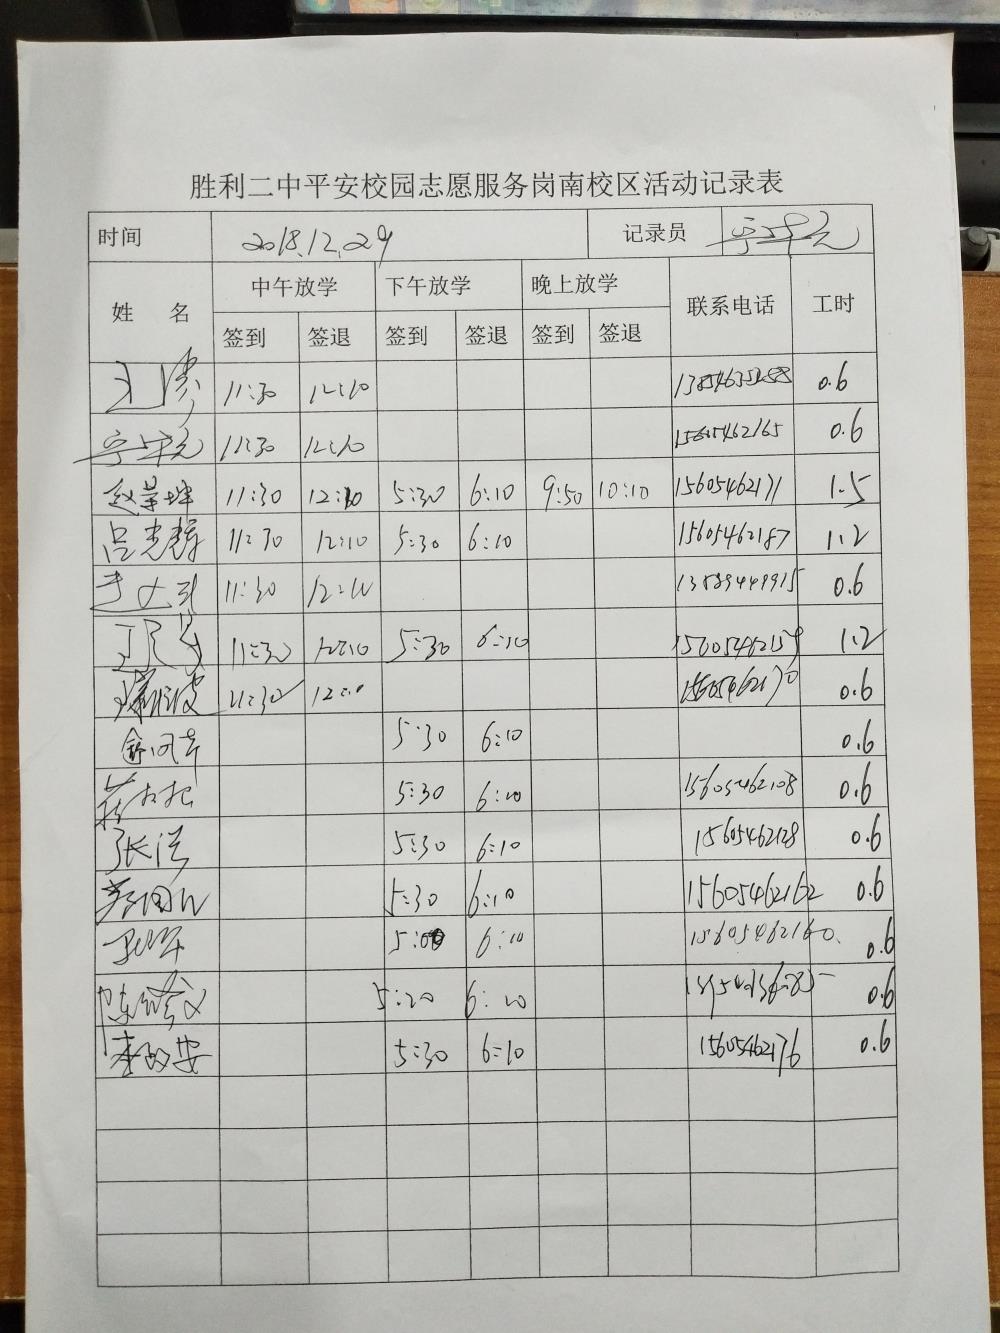 胜利二中平安校园志愿服务岗南校区活动记录表
时间 2018.12.29 记录员
姓 名 中午放学 下午放学 晚上放学 联系电话 工时
签到 签退 签到 签退 签到 签退
11:30 12:10 0.6
11:30 12:10 15605462165 0.6
赵荣坤 11:30 12:10 5:30 6:10 9:50 10:10 15605462171 1.5
吕光辉 11:30 12:10 5:30 6:10 15605462187 1.2
11:30 12:10 13589449915 0.6
11:30 12:10 5:30 6:10 15605462159 1.2
11:30 12:10 15605462170 0.6
5:30 6:10 0.6
5:30 6:10 15605462108 0.6
张洪 5:30 6:10 15605462128 0.6
5:30 6:10 15605462162 0.6
6:10 15605462160 0.6
5:20 6:20 0.6
李政安 5:30 6:10 15605462176 0.6